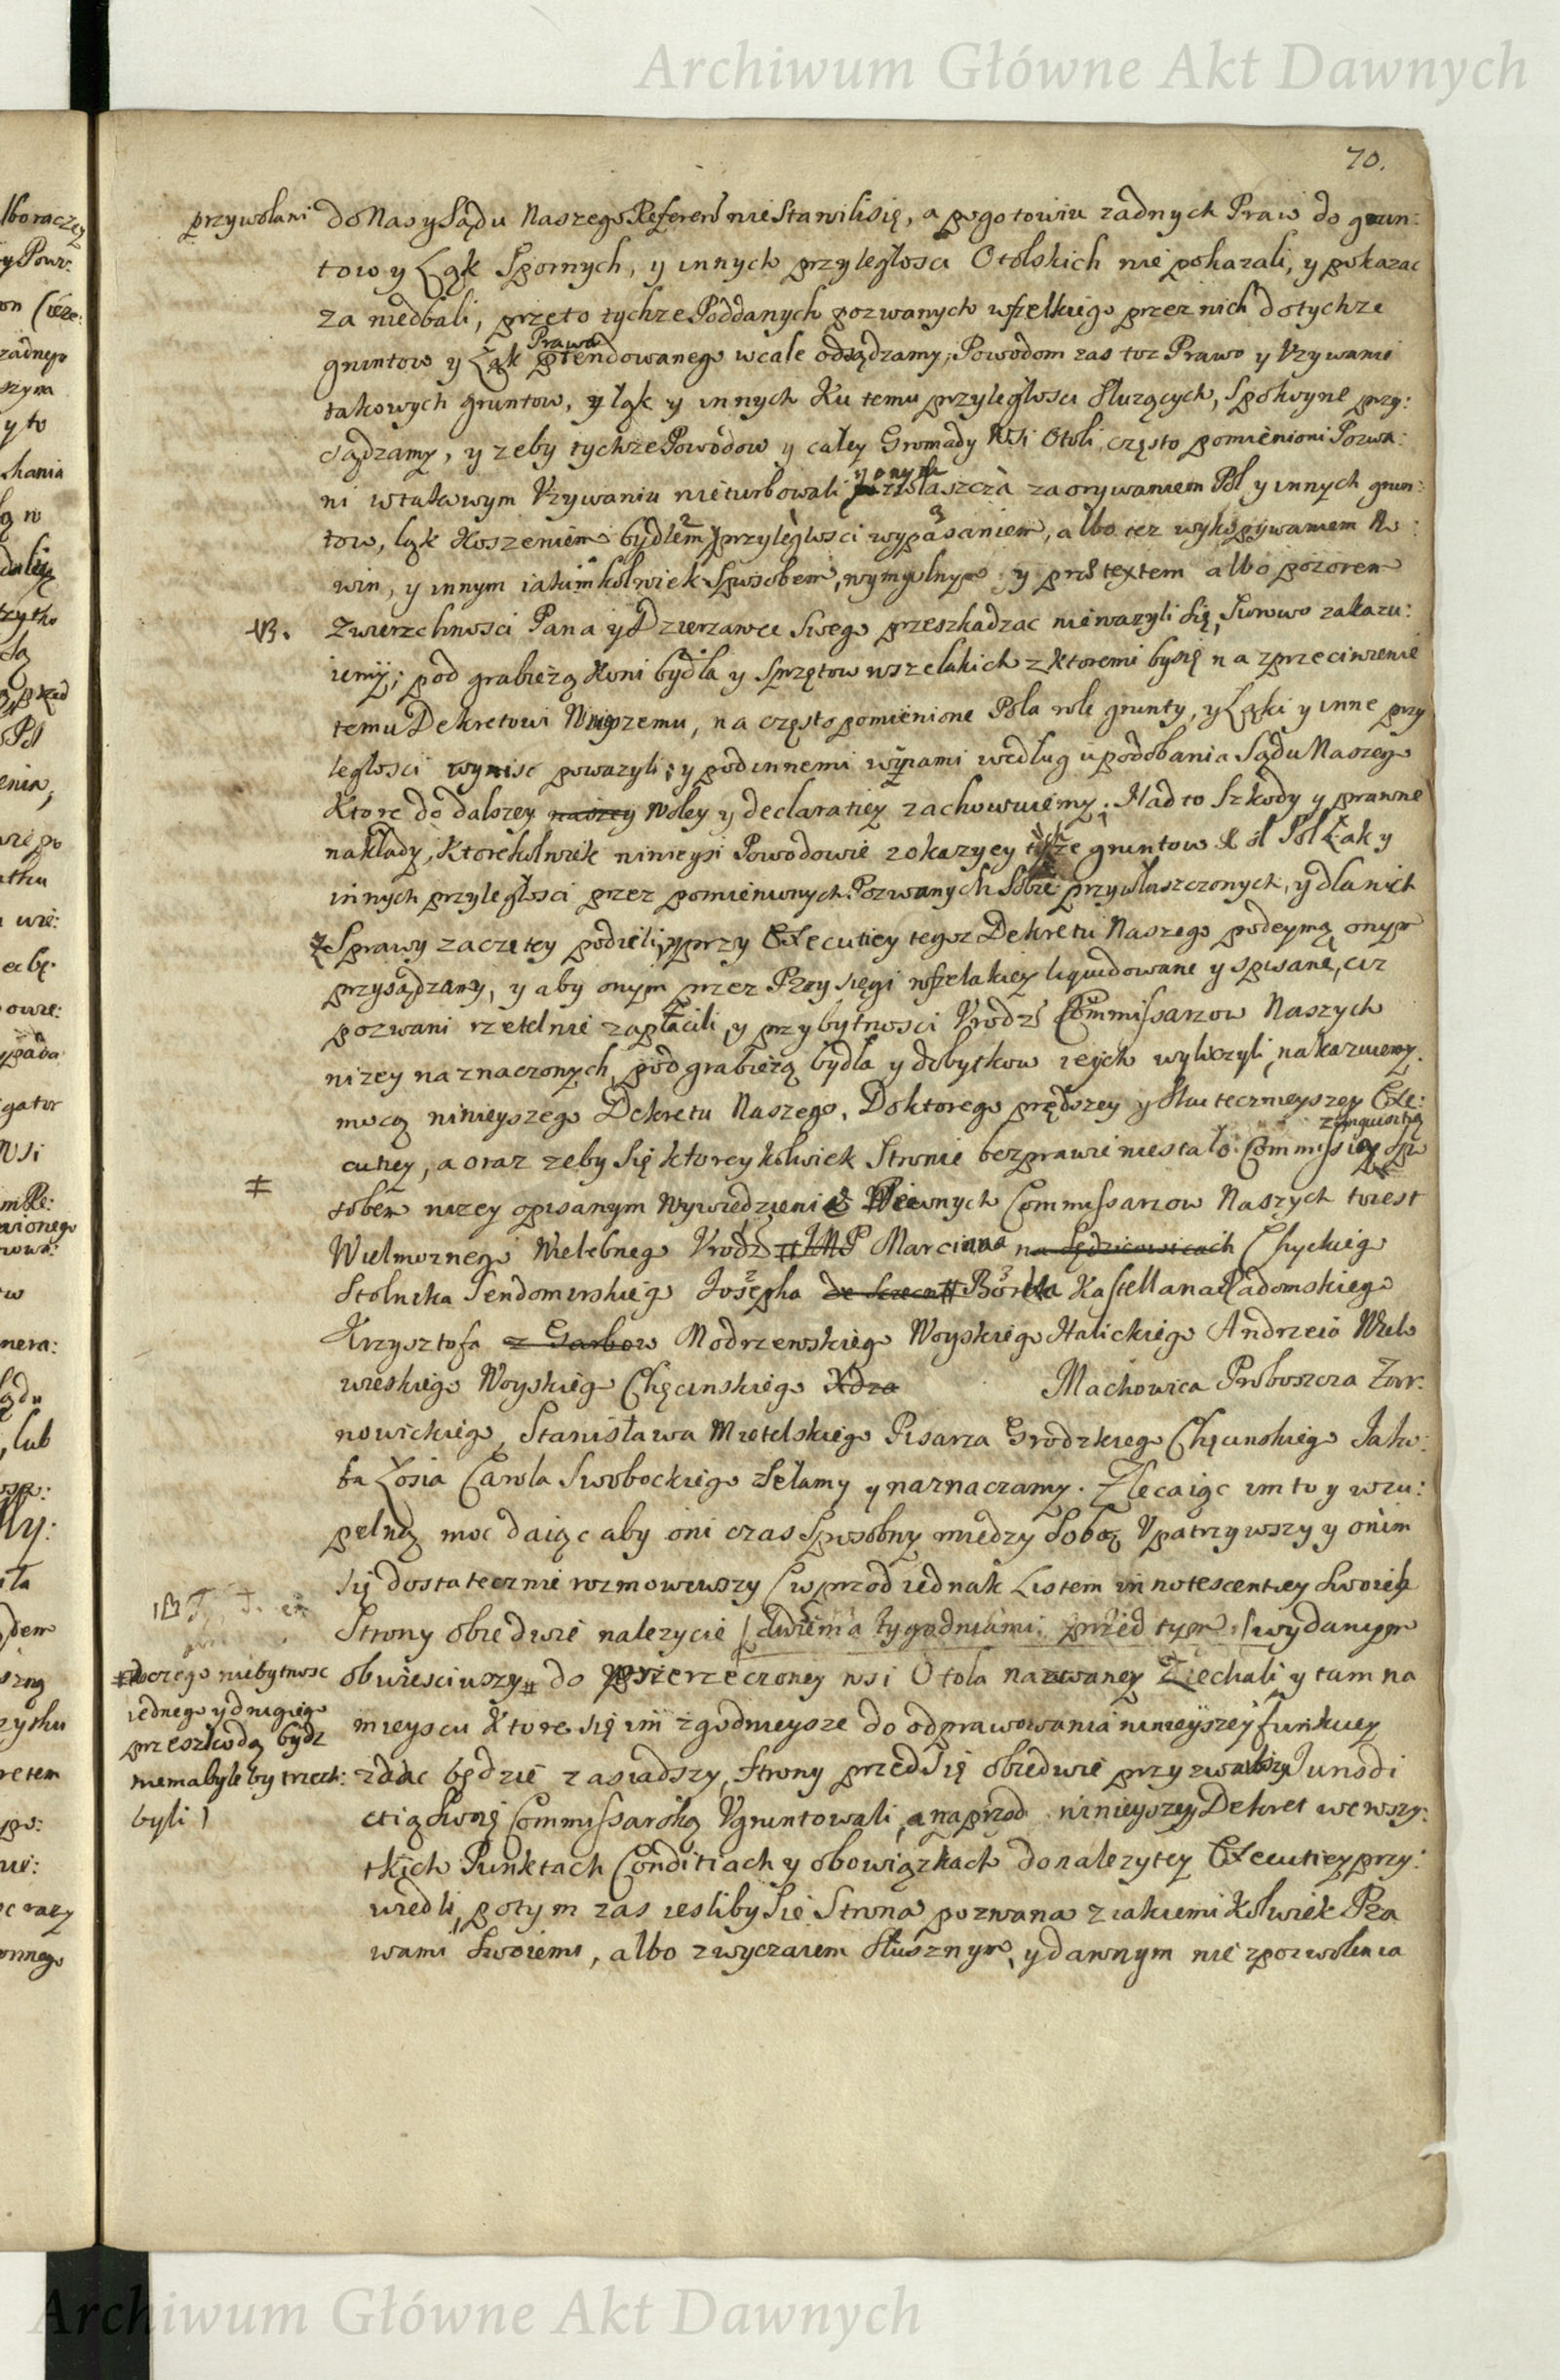 Archiwum Główne Akt Dawnych
70.
przywołani do Nas y Sądu Naszego Referen nie Stawili się, a pogotowiu zadnych Praw do grun:
tow y Łąk Spornych, y innych przyległosci Otolskich nie pokazali, y pokazac
za niedbali, przeto tychze Poddanych pozwanych wszelkiego przez nich do tychze
Prawa
gruntow y Łąk prętendowanego wcale odsądzamy; Powodom zas toz Prawo y Vzywanie
takowych gruntow, y łąk y innych Ku temu przyległosci Słuzących, Spokoyne przy:
sądzamy, y zeby tychze Powodow y całey Gromady Wsi Otoli często pomienioni Pozwa:
y onym
ni w takowym Vzywaniu nie turbowali zwłaszcza zaorywaniem Pol y innych grun:
tow, łąk Koszeniem bydłem przyległosci wypasaniem, albo tez wykopywaniem Ro:
win, y innym iakimkolwiek Sposobem, wymyslnym y prætextem albo pozorem
NB. Zwierzchnosci Pana y Dzierzawce Swego przeszkadzac niewazyli się, Surowo zakazu:
iemy; pod grabieżą Koni bydła y Sprzętow wszelakich z ktoremi by się na zprzeciwienie
temu Dekretowi Ninieyszemu, na często pomienione Pola role grunty, y Łąki y inne przy
ległosci wynisć powazyli; y pod innemi winami według upodobania Sądu Naszego
Ktore do dalszey naszey Woley y declaratiey zachowuiemy. Nad to Szkody y prawne
nakłady, Ktorekolwiek ninieysi Powodowie z okazyey tychze gruntow Pol Łąk y
innych przyległosci przez pomienionych Pozwanych Sobie przywłaszczonych, y dla nich
z Sprawy zaczętey podieli, y przy Executiey tegoz Dekretu Naszego podeymą onym
przysądzamy, y aby onym przez Przysięgi wszelakiey liquidowane y spisane, ciz
pozwani rzetelnie zapłacili, y przy bytnosci Vrodz Commissarzow Naszych
nizey naznaczonych, pod grabieżą bydła y dobytkow ieych wyliczyli, nakazuiemy
mocą ninieyszego Dekretu Naszego. Do ktorego prędszey y Skutecznieyszey Exe:
z Inquisitią
cutiey, a oraz zeby się ktoreykolwiek Stronie bezprawie niestało Commissią Spo
# sobem nizey opisanym Wywiedzienia Pewnych Commissarzow Naszych to iest
Wielmoznego Wielebnego Vrodz Marcina na Sędzicowicach Chyckiego
Stolnika Sendomirskiego Jozepha Borka Kasztellana Radomskiego
Krzysztofa z Garbow Modrzewskiego Woyskiego Halickiego Andrzeia Wielo
wieskiego Woyskiego Chęcinskiego Xdza Machowica Proboszcza Zar:
nowickiego, Stanisława Mietelskiego Pisarza Grodzkiego Chęcinskiego Jako:
ba Łosia Carola Swobockiego zsełamy y naznaczamy. Zlecaiąc im to y wzu:
pełną moc daiąc aby oni czas Sposobny miedzy Sobą Vpatrzywszy y o nim
się dostatecznie rozmowiwszy (wprzod iednak Listem innotescentiey Swoich
NB
Strony obiedwie nalezycie (dwiema tygodniami przed tym) wydanym
obwiesciwszy # do Przerzeczoney wsi Otola nazwaney Ziechali, y tam na
# do czego niebytnosc
iednego y drugiego
przeszkodą bydz
niema byle by trzech:
byli)
mieyscu Ktore się im zgodnieysze do odprawowania ninieyszey funkciey
zdac będzie zasiadszy, Strony przed Się obiedwie przyzwawszy Jurisdi
ctią Swoię Commissarską Vgruntowali, a naprzod ninieyszy Dekret we wszy:
tkich Punktach Conditiach y obowiązkach do nalezytey Executiey przy:
wiedli, potym zas iesliby Się Strona pozwana z iakiemi Kolwiek Pra
wami Swoiemi, albo zwyczaiem Słusznym, y dawnym nie zpozwolenia
Archiwum Główne Akt Dawnych